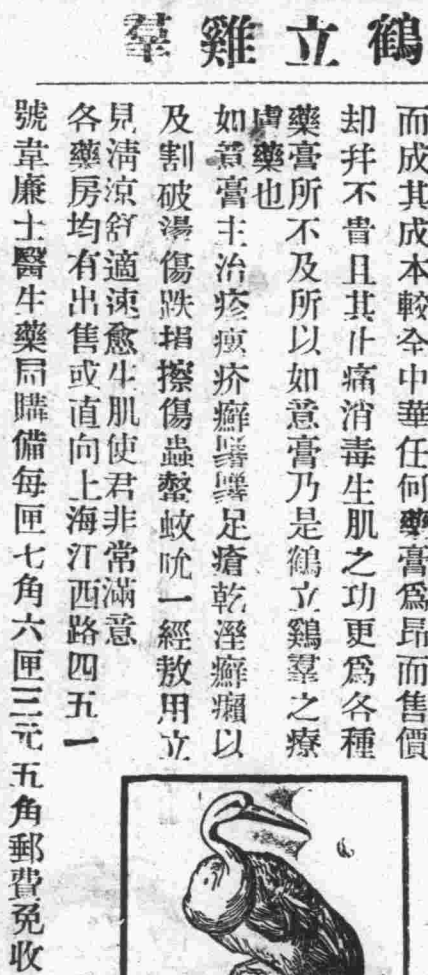 鶴立雞羣
而成其成本較全中華任何藥膏爲昂而售價
却幷不貴且其止痛消毒生肌之功更爲各種
藥膏所不及所以如意膏乃是鶴立鷄羣之療
膚藥也
如意膏主治疹痕疥癬足瘡乾溼癬癩以
及割破湯傷跌損擦傷蟲螫蚊吮一經敖用立
見淸凉舒適速愈生肌使君非常滿意
各藥房均有出售或直向上海江西路四五一
號韋廉士醫生藥局購備每匣七角六匣三元五角郵費免收